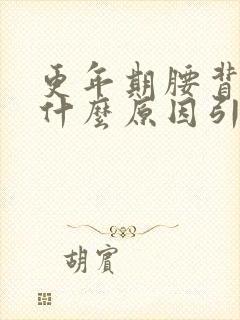 更年期腰背
什麼原因引
胡賓